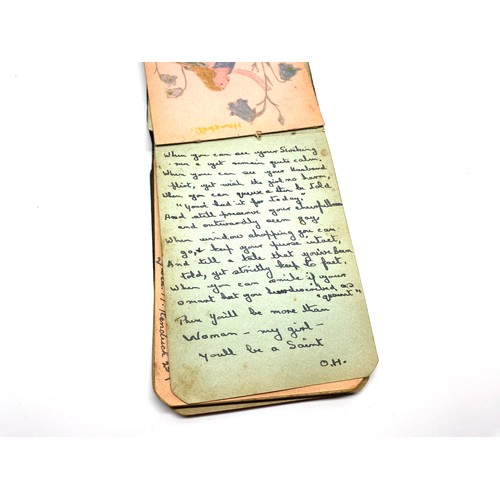 Harebell.
When you can see your Stocking
run & yet remain quite calm,
When you can see your husband
flirt, yet wish the girl no harm,
When you can queue & then be told
"You'd had it for today"
And still preserve your cheerfulness
and outwardly seem gay,
When window shopping you can
go, & keep your purse intact,
And tell a tale that you've been
told, yet strictly keep to fact.
When you can smile if your
smart hat you discovered, as
"quaint"
Then You'll be more than
Woman - my girl -
You'll be a Saint
O.H.
Kendrick